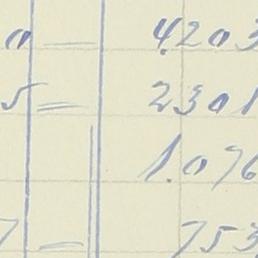 0 — 4.203
5 = 2301
1.076
7 = 753